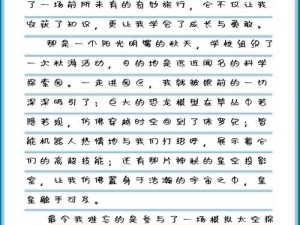 了一场前所未有的奇妙旅行，它不仅让我
收获了知识，更让我学会了成长与勇敢。
那是一个阳光明媚的秋天，学校组织了
一次秋游活动，目的地是远近闻名的科学
探索园。一走进园区，我就被眼前的一切
深深吸引了：巨大的恐龙模型在草丛中若
隐若现，仿佛穿越时空回到了侏罗纪；智
能机器人热情地与我们打招呼，展示着它
们的高超技能；还有那片神秘的星空投影
室，让我仿佛置身于浩瀚的宇宙之中，星
星触手可及。
最令我难忘的是参与了一场模拟太空探